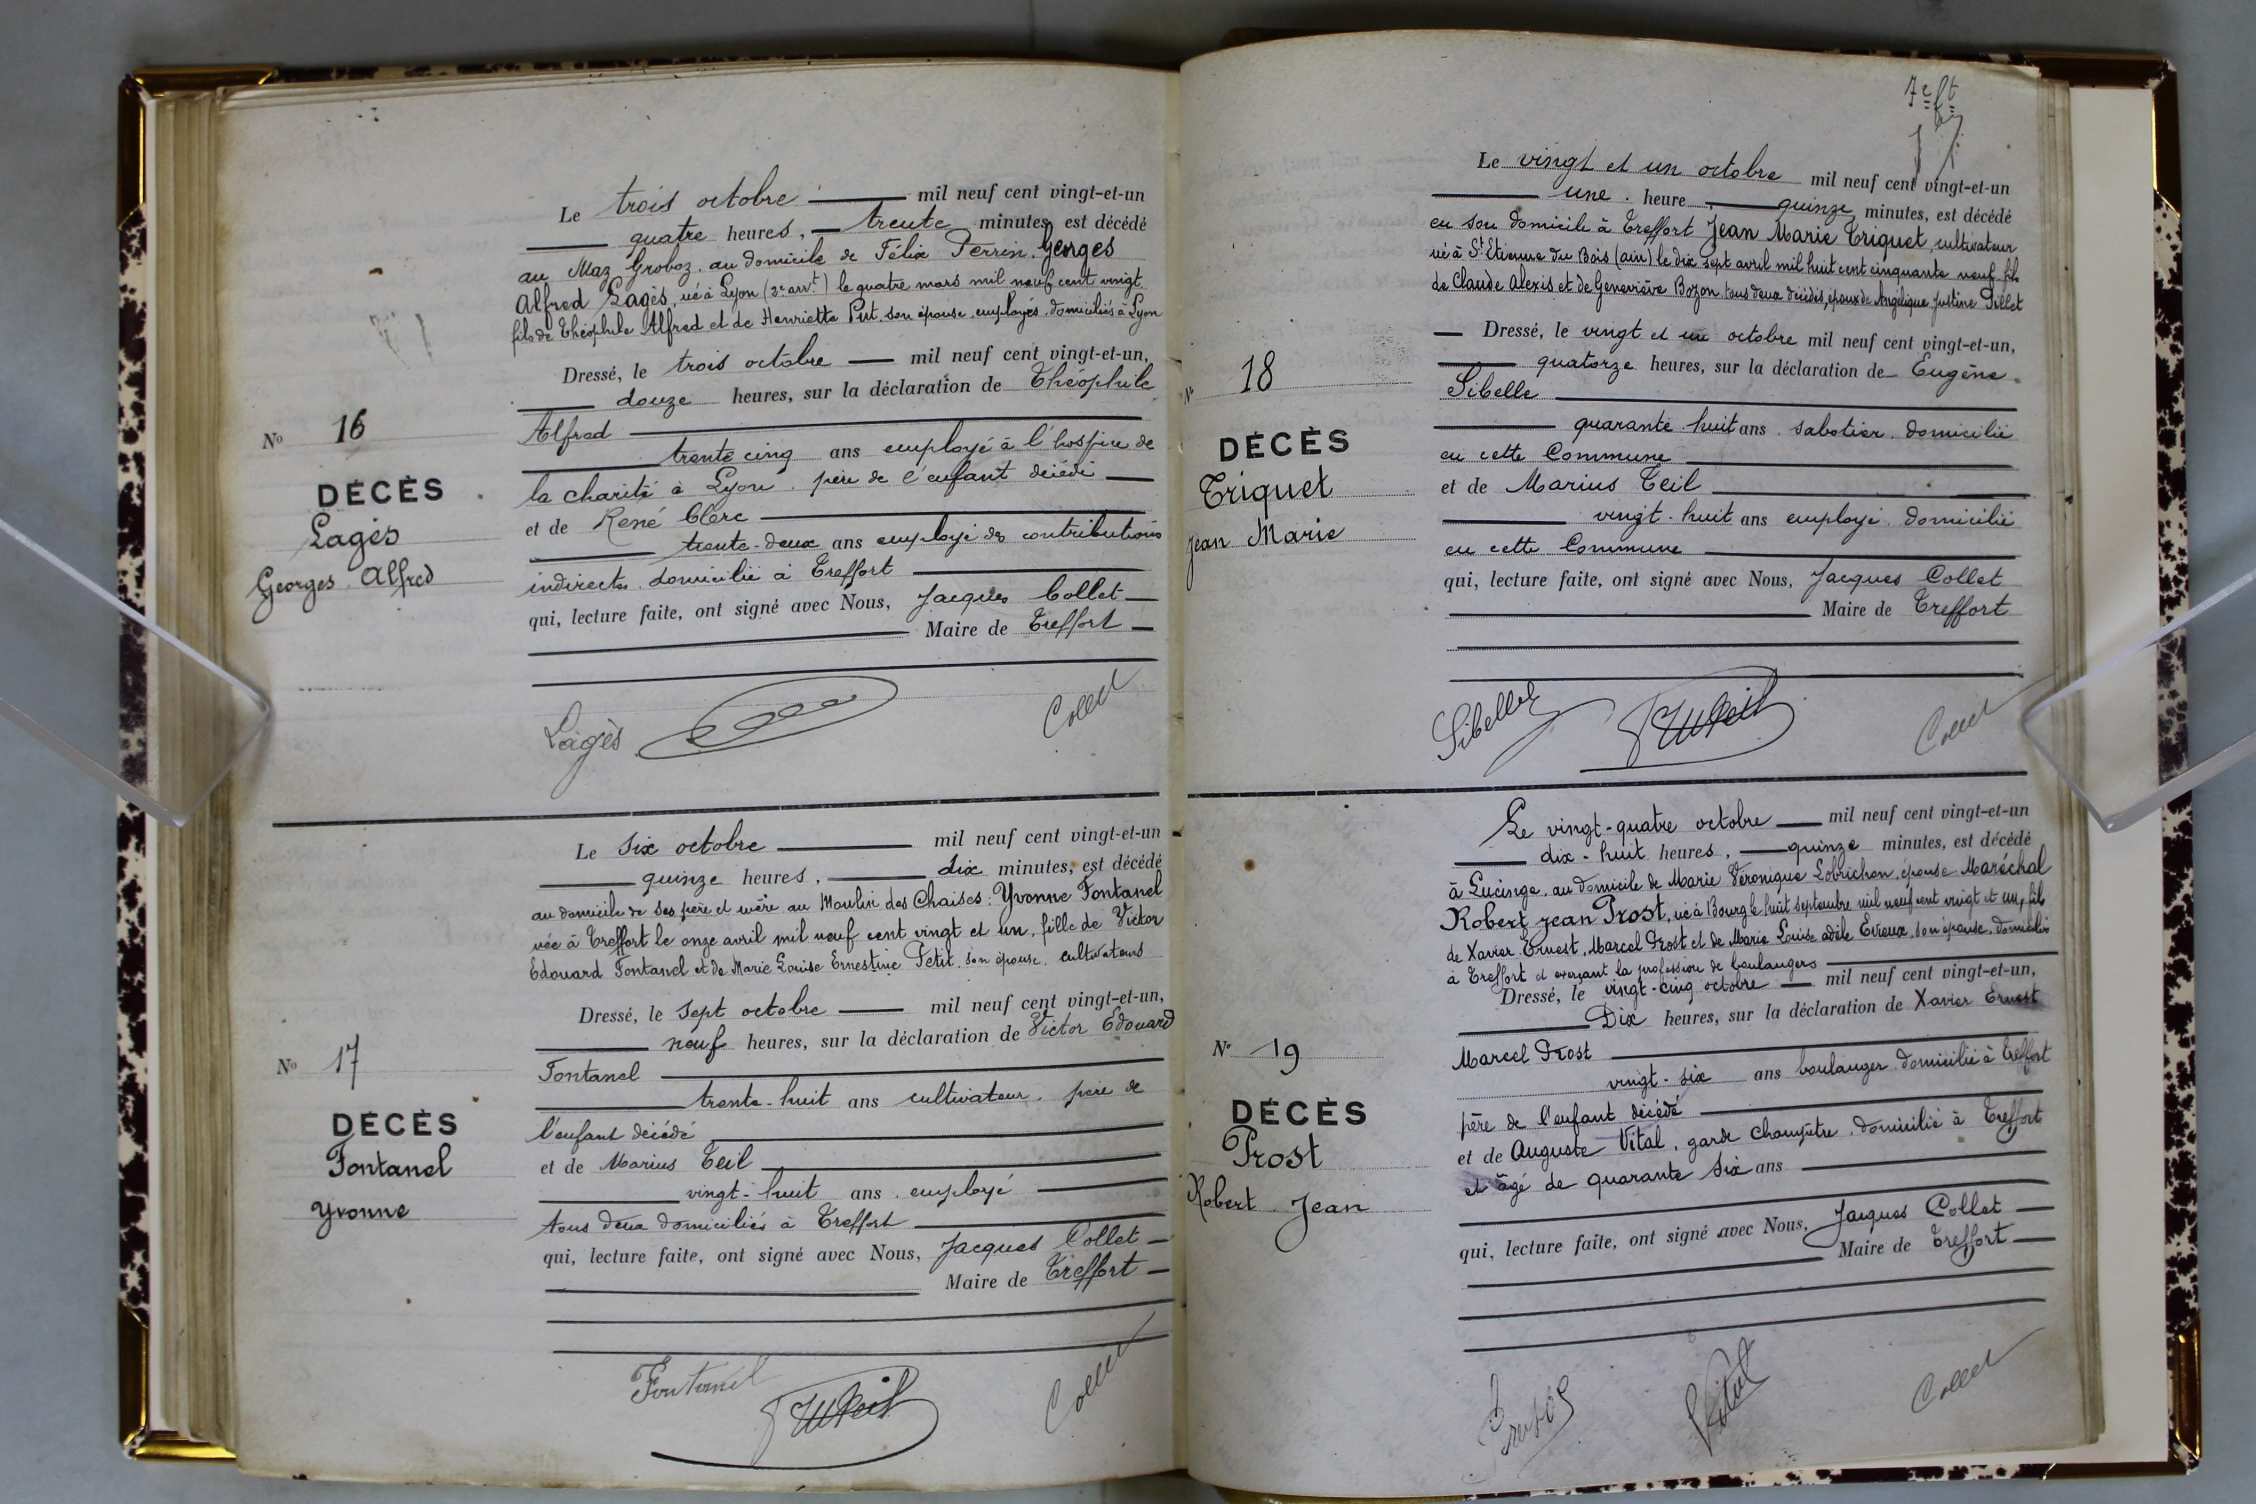 Le trois octobre mil neuf cent vingt-et-un
quatre heures, trente minutes est décédé
au Maz Groboz au domicile de Félix Perrin. Georges
Alfred Lagès, né à Lyon (2e arrt) le quatre mars mil neuf cent vingt
fils de Théophile Alfred et de Henriette Put son épouse, employés, domiciliés à Lyon
Dressé, le trois octobre mil neuf cent vingt-et-un,
douze heures, sur la déclaration de Théophile
Alfred
trente cinq ans employé à l'hospice de
la charité à Lyon. père de l'enfant décédé
et de René Clerc
trente-deux ans employé des contributions
indirectes domicilié à Treffort
qui, lecture faite, ont signé avec Nous, Jacques Collet
Maire de Treffort
No 16
DÉCÈS
Lagès
Georges Alfred
Lagès Collet
Le six octobre mil neuf cent vingt-et-un
quinze heures, dix minutes, est décédé
au domicile de ses père et mère au Moulin des Chaises: Yvonne Fontanel
née à Treffort le onze avril mil neuf cent vingt et un, fille de Victor
Edouard Fontanel et de Marie Louise Ernestine Petit son épouse cultivateurs
Dressé, le sept octobre mil neuf cent vingt-et-un,
neuf heures, sur la déclaration de Victor Edouard
Fontanel
trente-huit ans cultivateur, père de
l'enfant décédé
et de Marius Teil
vingt-huit ans employé
tous deux domiciliés à Treffort
qui, lecture faite, ont signé avec Nous, Jacques Collet
Maire de Treffort
No 17
DÉCÈS
Fontanel
Yvonne
Fontanel Teil Collet
7e ft
Le vingt et un octobre mil neuf cent vingt-et-un
une heure quinze minutes, est décédé
en son domicile à Treffort Jean Marie Triquet, cultivateur
né à St Etienne du Bois (ain) le dix sept avril mil huit cent cinquante neuf fils
de Claude Alexis et de Geneviève Bozon tous deux décédés, époux de Angélique Justine Pillet
Dressé, le vingt et un octobre mil neuf cent vingt-et-un,
quatorze heures, sur la déclaration de Eugène
Sibelle
quarante huit ans sabotier domicilié
en cette Commune
et de Marius Teil
vingt-huit ans employé domicilié
en cette Commune
qui, lecture faite, ont signé avec Nous, Jacques Collet
Maire de Treffort
No 18
DÉCÈS
Triquet
Jean Marie
Sibelle Teil Collet
Le vingt-quatre octobre mil neuf cent vingt-et-un
dix-huit heures, quinze minutes, est décédé
à Lucinge, au domicile de Marie Véronique Lobrichon, épouse Maréchal
Robert Jean Prost, né à Bourg le huit septembre mil neuf cent vingt et un, fils
de Xavier Ernest, Marcel Prost et de Marie Louise adèle Evieux, son épouse, domiciliés
à Treffort et exerçant la profession de boulangers
Dressé, le vingt-cinq octobre mil neuf cent vingt-et-un,
Dix heures, sur la déclaration de Xavier Ernest
Marcel Prost
vingt-six ans boulanger domicilié à Treffort
père de l'enfant décédé
et de Auguste Vital, garde champêtre, domicilié à Treffort
et âgé de quarante six ans
qui, lecture faite, ont signé avec Nous, Jacques Collet
Maire de Treffort
No 19
DÉCÈS
Prost
Robert Jean
Prost Vital Collet